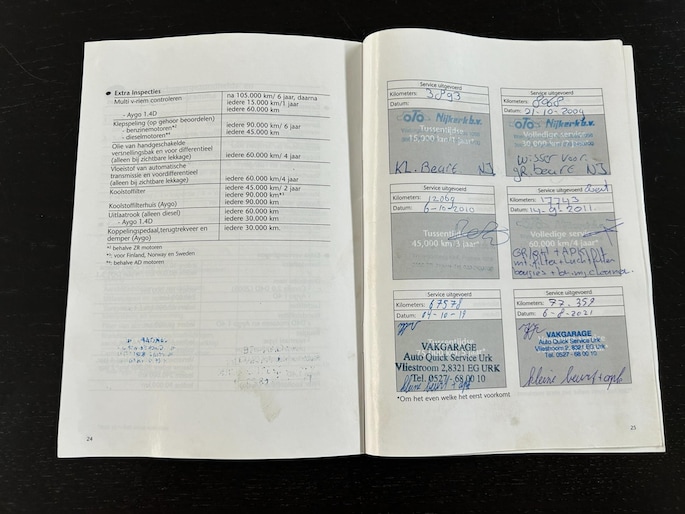 ● Extra Inspecties
Multi v-riem controleren
na 105.000 km/ 6 jaar, daarna
iedere 15.000 km/1 jaar
- Aygo 1.4D
iedere 60.000 km
Klepspeling (op gehoor beoordelen)
- benzinemotoren*¹
iedere 90.000 km/ 6 jaar
- dieselmotoren*²
iedere 45.000 km
Olie van handgeschakelde
versnellingsbak en voor differentieel
(alleen bij zichtbare lekkage)
iedere 60.000 km/ 4 jaar
Vloeistof van automatische
transmissie en voordifferentieel
(alleen bij zichtbare lekkage)
iedere 60.000 km/4 jaar
Koolstoffilter
iedere 45.000 km/ 2 jaar
iedere 90.000 km*¹
Koolstoffilterhuis (Aygo)
iedere 90.000 km
Uitlaatrook (alleen diesel)
iedere 60.000 km
- Aygo 1.4D
iedere 30.000 km
Koppelingspedaal,terugtrekveer en
demper (Aygo)
iedere 30.000 km.
behalve ZR motoren
voor Finland, Norway en Sweden
behalve AD motoren
24
Service uitgevoerd
Kilometers: 3893
Datum:
Nijkerk b.v.
Tussentijdse
15,000 km/1 jaar*
KL. Beurt NJ
Service uitgevoerd
Kilometers: 868
Datum: 21-10-2004
Nijkerk b.v.
Volledige service
30,000 km/
wisser voor
beurt NJ
Service uitgevoerd
Kilometers: 12069
Datum: 6-10-2010
Tussentijdse
45,000 km/3 jaar*
Service uitgevoerd
Kilometers: 17743
Datum: 14-9-2011
Volledige service
60,000 km/4 jaar*
Service uitgevoerd
Kilometers: 67578
Datum: 04-10-19
VAKGARAGE
Auto Quick Service Urk
Vliestroom 2,8321 EG URK
Tel. 0527-68 00 10
kleine beurt + apk
Service uitgevoerd
Kilometers: 77.359
Datum: 6-8-2021
VAKGARAGE
Auto Quick Service Urk
Vliestroom 2, 8321 EG Urk
Tel. 0527-68 00 10
kleine beurt + apk
*Om het even welke het eerst voorkomt
25